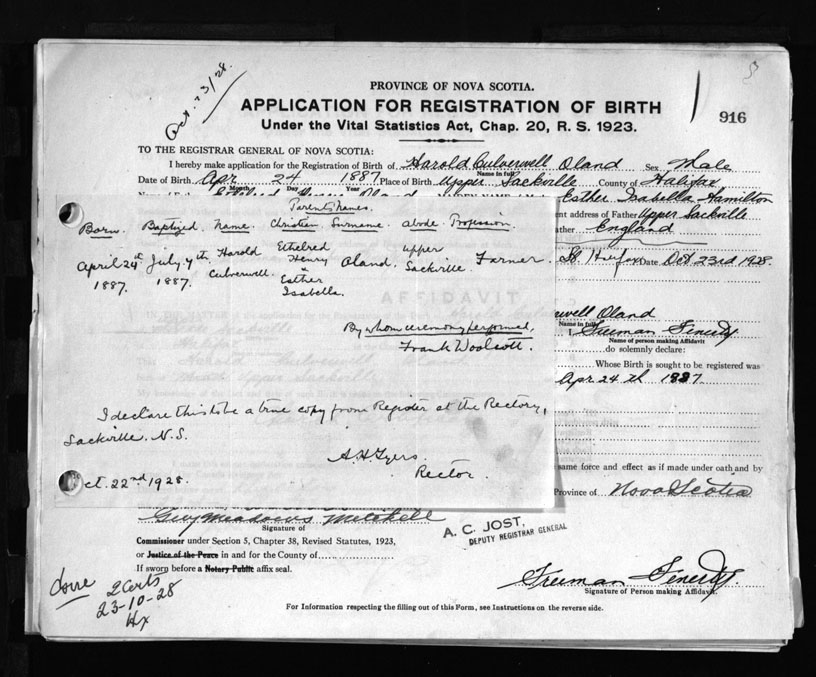 Oct. 23/28.
PROVINCE OF NOVA SCOTIA.
APPLICATION FOR REGISTRATION OF BIRTH
916
Under the Vital Statistics Act, Chap. 20, R. S. 1923.
TO THE REGISTRAR GENERAL OF NOVA SCOTIA:
I hereby make application for the Registration of Birth of Harold Culverwell Oland Sex Male
Name in full
Date of Birth Apr 24 1887 Place of Birth Upper Sackville County of Halifax
Month Day Year
Esther Isabella Hamilton
address of Father Upper Sackville
England
Date Oct 23rd 1928
Parents Names.
Born. Baptized. Name. Christian. Surname. abode. Profession.
April 24th 1887. July 7th 1887. Harold Culverwell. Ethelred Henry & Esther Isabella. Oland. upper Sackville. Farmer.
By whom ceremony performed,
Frank Woolcott.
I declare this to be a true copy from Register at the Rectory,
Sackville, N.S.
Rector.
Oct. 22nd 1928.
AFFIDAVIT
Oland
Name in full
I, Freeman
Name of person making Affidavit
do solemnly declare:
Whose Birth is sought to be registered was
Apr 24th 1887.
same force and effect as if made under oath and by
Province of Nova Scotia
Guy Meadows Mitchell
Signature of
Commissioner under Section 5, Chapter 38, Revised Statutes, 1923,
or Justice of the Peace in and for the County of
If sworn before a Notary Public affix seal.
A. C. JOST,
DEPUTY REGISTRAR GENERAL
Freeman
Signature of Person making Affidavit.
For Information respecting the filling out of this Form, see Instructions on the reverse side.
2 Certs
23-10-28
Hx